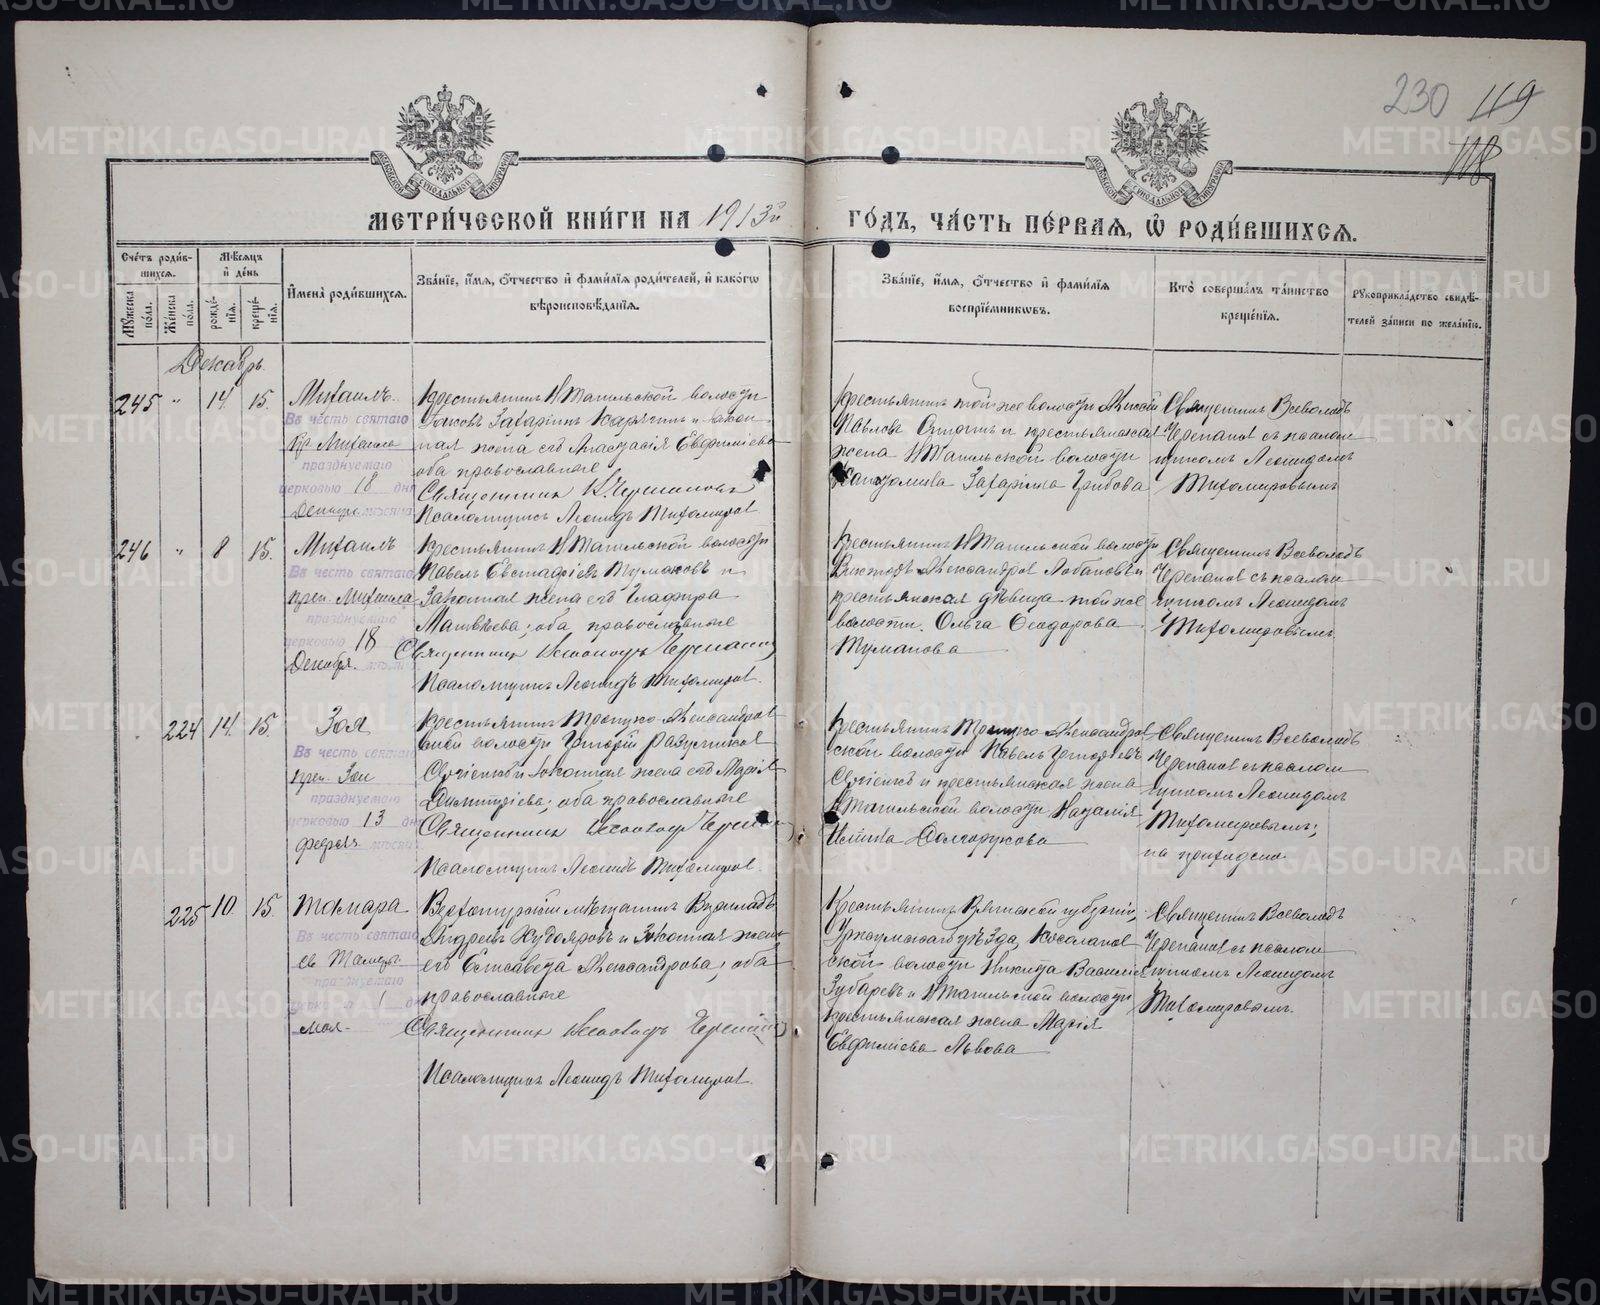 230 119
118
МЕТРИ́ЧЕСКОЙ КНИ́ГИ НА 1913й ГО́ДЪ, ЧА́СТЬ ПЕ́РВАЯ, Ѽ РОДИ́ВШИХСЯ.
Сче́тъ роди́вшихся.
Му́жеска по́ла.
Же́нска по́ла.
Мѣ́сяцъ и де́нь
рожде́нїя.
креще́нїя.
И҆мена̀ роди́вшихся.
Зва́нїе, и҆́мя, ѻ҆́тчество и҆ фами́лїя роди́телей, и҆ како́гѡ вѣроисповѣ́данїя.
Зва́нїе, и҆́мя, ѻ҆́тчество и҆ фами́лїя воспрїе́мниковъ.
Кто̀ соверша́лъ та́инство креще́нїя.
Рꙋкоприкла́дство свидѣ́телей за́писи по жела́нїю.
Декабрь.
245 " 14. 15.
Михаилъ.
Въ честь святаго
Михаила
празднуемаго
церковью 18 дня
Декабря мѣсяца
Крестьянинъ Н Тагильской волости
Захарiинъ и закон-
ная жена его Анастасiя Евфимiева
оба православные
Священникъ В. Черепановъ
Псаломщикъ Леонидъ Тихомировъ
Крестьянинъ той же волости Алексѣй
Павловъ и крестьянская
жена Н Тагильской волости
Захарина Грибова
Священникъ Всеволодъ
Черепановъ съ псалом-
щикомъ Леонидомъ
Тихомировымъ
246 " 8 15.
Михаилъ
Въ честь святаго
преп. Михаила
празднуемаго
церковью 18 дня
Декабря.
Крестьянинъ Н Тагильской волости
Павелъ Евстафiевъ Тумаковъ и
Законная жена его Глафира
Матвѣева; оба православные
Священникъ Всеволодъ Черепановъ
Псаломщикъ Леонидъ Тихомировъ.
Крестьянинъ Н Тагильской волости
Викторъ Александровъ Лобановъ и
крестьянская дѣвица той же
волости Ольга Ѳеодорова
Тумакова
Священникъ Всеволодъ
Черепановъ съ псалом-
щикомъ Леонидомъ
Тихомировымъ.
224 14. 15.
Зоя
Въ честь святаго
преп. Зои
празднуемаго
церковью 13 дня
февраля мѣсяца
Крестьянинъ Троицко-Александров-
ской волости Григорiй
и Законная жена его Марiя
Димитрiева; оба православные
Священникъ Всеволодъ Черепановъ
Псаломщикъ Леонидъ Тихомировъ.
Крестьянинъ Троицко Александров-
ской волости Павелъ Григорьевъ
и крестьянская жена
Н Тагильской волости Наталiя
Ильина Долгорукова
Священникъ Всеволодъ
Черепановъ съ псалом-
щикомъ Леонидомъ
Тихомировымъ;
225 10. 15.
Тамара
Въ честь святаго
св Тамары
празднуемаго
церковью 1 дня
мая
Верхотурскiй мѣщанинъ
Андреевъ Худояровъ и Законная жена
его Елисавета Александрова; оба
православные
Священникъ Всеволодъ Черепановъ
Псаломщикъ Леонидъ Тихомировъ.
Крестьянинъ Вятской губернiи,
Уржумскаго уѣзда,
ской волости Никита Васильевъ
Зубаревъ и Н Тагильской волости
крестьянская жена Марiя
Евфимiева Львова
Священникъ Всеволодъ
Черепановъ съ псалом-
щикомъ Леонидомъ
Тихомировымъ.
METRIKI.GASO-URAL.RU